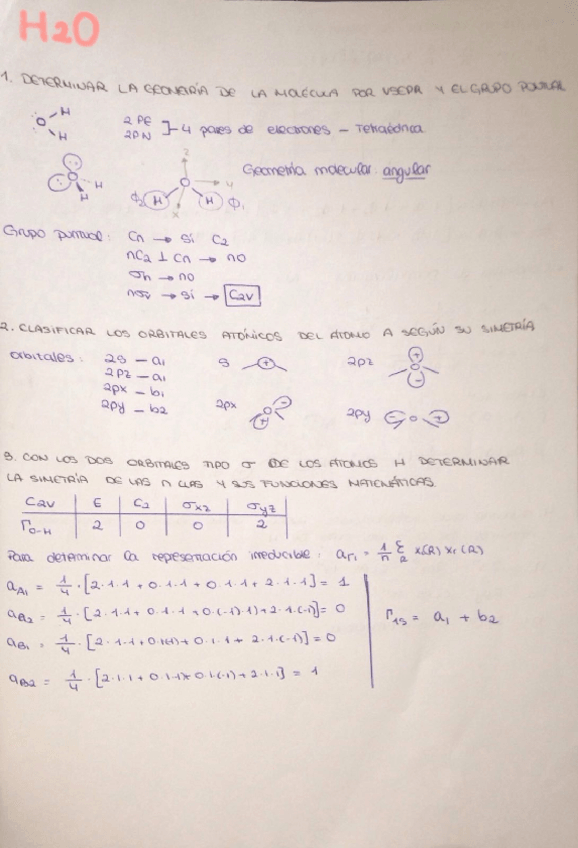 H2O
1. DETERMINAR LA GEOMETRÍA DE LA MOLÉCULA POR VSEPR Y EL GRUPO PUNTUAL
O H H
2 PE
2 PN
] 4 pares de electrones - Tetraédrica
Geometría molecular: angular
z
y
x
H
H
Φ2 H H Φ1
Grupo puntual: Cn → sí C2
nC2 ⊥ Cn → no
σh → no
nσv → sí → C2v
2. CLASIFICAR LOS ORBITALES ATÓMICOS DEL ÁTOMO A SEGÚN SU SIMETRÍA
Orbitales: 2s - a1
2pz - a1
2px - b1
2py - b2
s
2pz
2px
2py
3. CON LOS DOS ORBITALES TIPO σ DE LOS ÁTOMOS H DETERMINAR
LA SIMETRÍA DE LAS Y SUS FUNCIONES MATEMÁTICAS.
C2v E C2 σxz σyz
ΓO-H 2 0 0 2
Para determinar la representación irreducible: aΓi = 1/n Σ R χ(R) χr(R)
aA1 = 1/4 · [2·1·1 + 0·1·1 + 0·1·1 + 2·1·1] = 1
aA2 = 1/4 · [2·1·1 + 0·1·1 + 0·(-1)·1 + 2·1·(-1)] = 0
aB1 = 1/4 · [2·1·1 + 0·1(-1) + 0·1·1 + 2·1·(-1)] = 0
aB2 = 1/4 · [2·1·1 + 0·1·(-1) + 0·1·(-1) + 2·1·1] = 1
Γ1s = a1 + b2